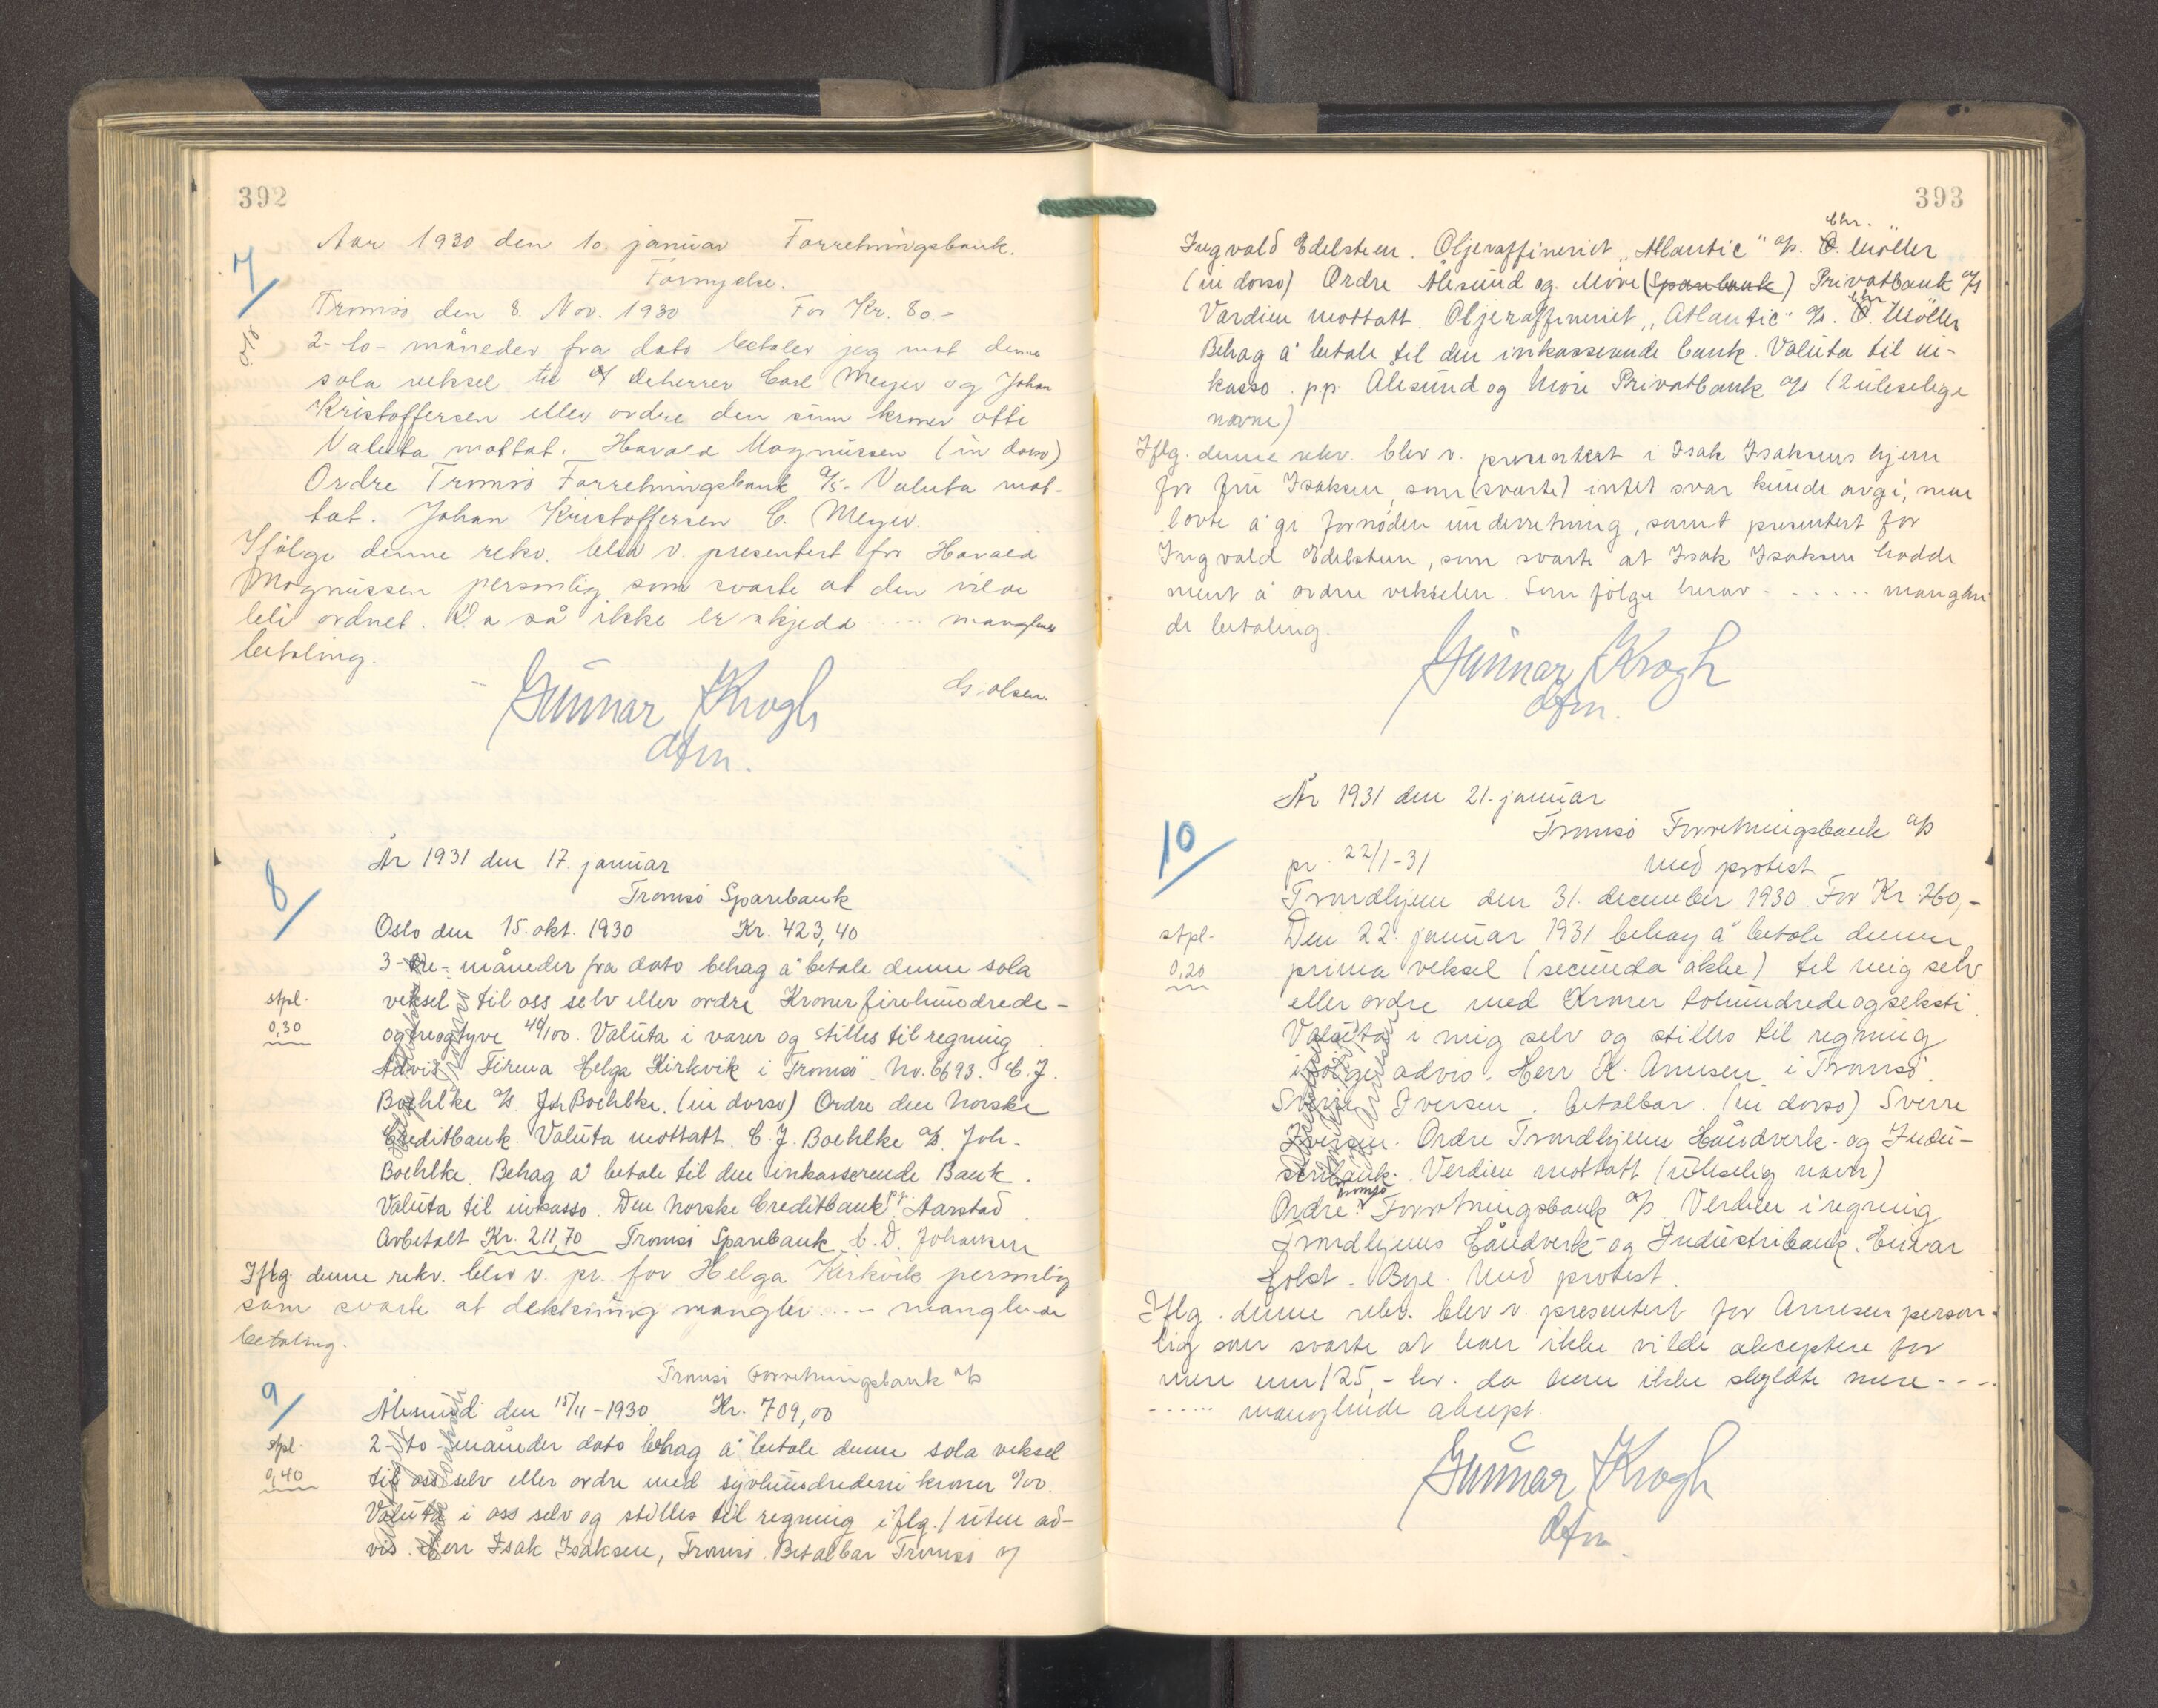 392
Aar 1930 den 10. januar Forretningsbank.
7
Fornyelse.
Tromsø den 8. Nov. 1930 For Kr. 80.-
2- to- måneder fra dato betaler jeg mot denne
sola veksel til Deherrer Carl Meyer og Johan
Kristoffersen eller ordre den sum kroner otti
Valuta mottat. Harald Magnussen (in dorso)
Ordre Tromsø Forretningsbank A/S.- Valuta mot-
tat. Johan Kristoffersen C. Meyer.
Ifølge denne rekv. blev v. presentert for Harald
Magnussen personlig som svarte at den vilde
bli ordnet. Da så ikke er skjedd .... manglende
betaling.
Gunnar Krogh
dfm.
Olsen.
År 1931 den 17. januar
8
Tromsø Sparebank
Oslo den 15. okt. 1930 Kr. 423,40
3-tre-måneder fra dato behag å betale denne sola
stpl.
0,30
veksel til oss selv eller ordre Kroner firehundrede-
ogtreogtyve 40/100. Valuta i varer og stilles til regning
Advis. Firma Helga Kirkvik i Tromsø. No. 6693. C. J.
Boehlke A/S. Joh Boehlke. (in dorso) Ordre den Norske
Creditbank. Valuta mottatt. C. J. Boehlke A/S. Joh.
Boehlke. Behag å betale til den inkasserende Bank.
Valuta til inkasso. Den Norske Creditbank pr. Aarstad.
Avbetalt Kr. 211,70 Tromsø Sparebank C. D. Johansen
Iflg. denne rekv. blev v. pr. for Helga Kirkvik personlig
som svarte at dekkning mangler ... - manglende
betaling.
Tromsø Forretningsbank A/S
9
Ålesund den 15/11-1930 Kr. 709,00
stpl.
0,40
2-to-måneder dato behag å betale denne sola veksel
til oss selv eller ordre med syvhundredeni kroner 0/00.
Valuta i oss selv og stilles til regning iflg. / uten ad-
vis. Herr Isak Isaksen, Tromsø. Betalbar Tromsø
393
Ingvald Edelsteen. Oljeraffineriet "Atlantic" A/S. Chr. Møller
(in dorso) Ordre Ålesund og Møre (Sparebank) Privatbank A/S
Værdien mottatt. Oljeraffineriet "Atlantic" A/S. Chr. Møller
Behag å betale til den inkasserende bank. Valuta til in-
kasso. pp. Alesund og Møre Privatbank A/S (2 uleselige
navne)
Iflg. denne rekv. blev v. presentert i Isak Isaksens hjem
for fru Isaksen, som (svarte) intet svar kunde avgi, men
lovte å gi fornøden underretning, samt presentert for
Ingvald Edelsteen, som svarte at Isak Isaksen hadde
ment å ordne vekselen. Som følge herav - ...... manglen
de betaling.
Gunnar Krogh
dfm.
År 1931 den 21. januar
10
Tromsø Forretningsbank A/S
pr. 22/1-31 Med protest
Trondhjem den 31. december 1930. For Kr 260,-
stpl.
0,20
Den 22. januar 1931 behag å betale denne
prima veksel (secunda ikke) til mig selv
eller ordre med Kroner tohundredeogseksti
Valuta i mig selv og stilles til regning
ifølge advis. Herr K. Arnesen i Tromsø.
Sverre Iversen. betalbar. (in dorso) Sverre
Iversen. Ordre Trondhjems Håndverk- og Indu-
stribank. Verdien mottatt (uleselig navn)
Ordre Tromsø Forretningsbank A/S Verdien i regning
Trondhjems Håndverk- og Industribank. Einar
Holst. Bye. Med protest.
Iflg. denne rekv. blev v. presentert for Arnesen person-
lig som svarte at han ikke vilde akceptere for
mere enn 125,- kr. da han ikke skyldte mere - - -
...... manglende aksept.
Gunnar Krogh
dfm.